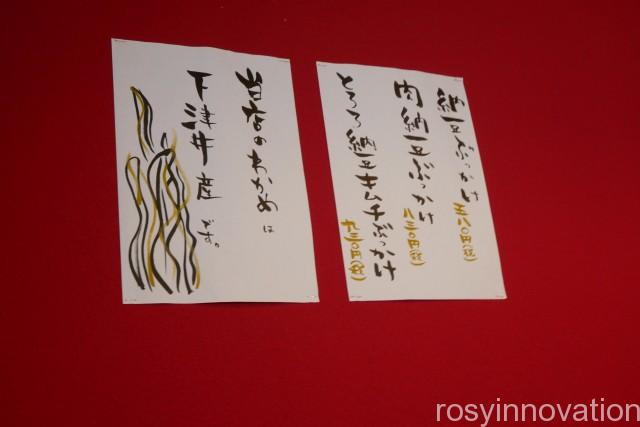 納豆ぶっかけ
五八〇円(税)
肉納豆ぶっかけ
八三〇円(税)
とろろ納豆キムチぶっかけ
九三〇円(税)
当店のわかめは
下津井産です。
rosyinnovation